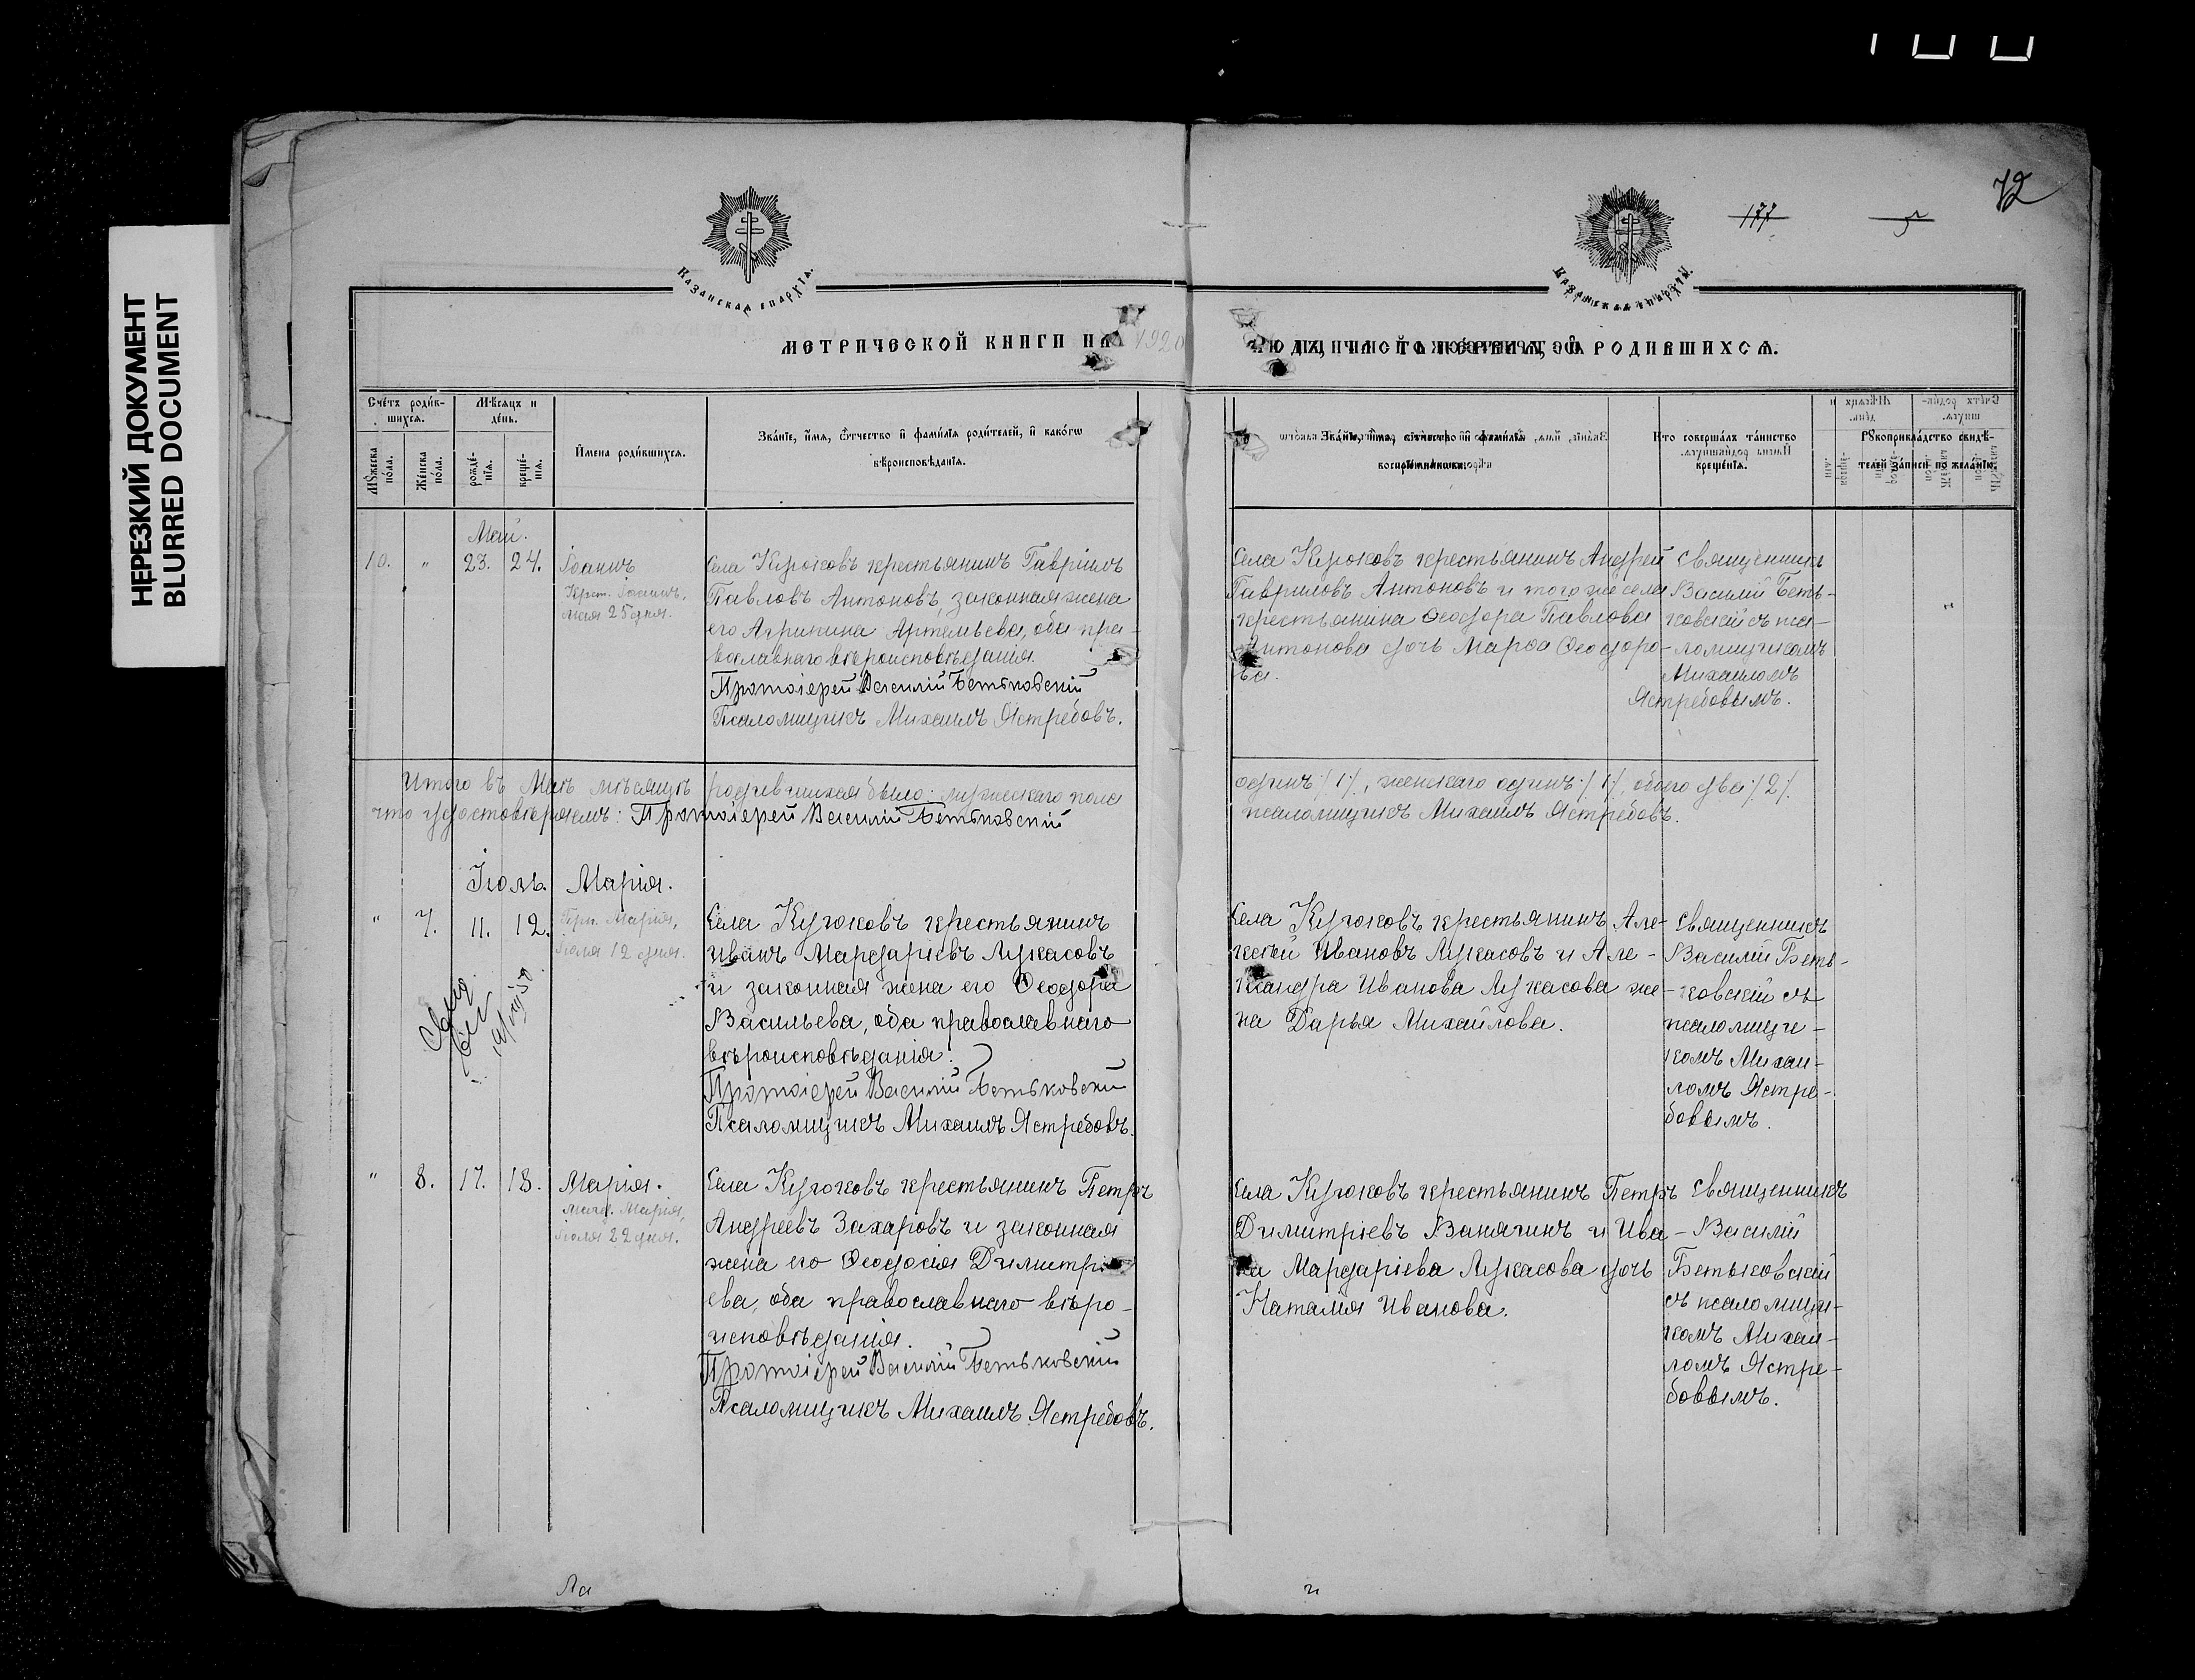 НЕРЕЗКИЙ ДОКУМЕНТ
BLURRED DOCUMENT
72
177
5
Казанская епархїѧ.
Казанская епархїѧ.
МЕТРИЧЕСКОЙ КНИГИ НА 1920
ГОДЪ, ЧАСТЬ ПЕРВАЯ, О РОДИВШИХСЯ.
Счетъ родив-
шихся.
Мѣсяцъ и
день.
Мужеска
пола.
Женска
пола.
рожде-
нія.
креще-
нія.
Имена родившихся.
Званіе, имя, отчество и фамилія родителей, и какогѡ
вѣроисповѣданія.
Званіе, имя, отчество и фамилія
воспріемниковъ.
Кто совершалъ таинство
крещенія.
Рукоприкладство свидѣ-
телей записи по желанію.
Май.
10. " 23. 24. Іоаннъ
Крест. Іоаннъ,
мая 25 дня.
Села Кугоковъ крестьянинъ Гавріилъ
Павловъ Антоновъ, законная жена
его Агрипина Артемьева, оба пра-
вославнаго вѣроисповѣданія.
Протоіерей Василій Бетьковскій
Псаломщикъ Михаилъ Ястребовъ.
Села Кугоковъ крестьянинъ Андрей
Гавриловъ Антоновъ и того же села
крестьянина Ѳеодора Павлова
Антонова дочь Марѳа Ѳеодоро-
ва.
Священникъ
Василій Беть-
ковскій съ пса-
ломщикомъ
Михаиломъ
Ястребовымъ.
"
Итого въ Маѣ мѣсяцѣ родившихся было: мужескаго пола
одинъ /1/, женскаго одинъ /1/, обоего два /2/.
что удостовѣряемъ: Протоіерей Василій Бетьковскій
псаломщикъ Михаилъ Ястребовъ.
Іюль. Марія.
" 7. 11. 12.
Марія,
Іюля 12 дня.
Села Кугоковъ крестьянинъ
Иванъ Мардаріевъ Лукасовъ
и законная жена его Ѳеодора
Васильева, оба православнаго
вѣроисповѣданія.
Протоіерей Василій Бетьковскій
Псаломщикъ Михаилъ Ястребовъ.
Села Кугоковъ крестьянинъ Але-
ксѣй Ивановъ Лукасовъ и Але-
ксандра Иванова Лукасова же-
на Дарья Михайлова.
Священникъ
Василій Беть-
ковскій съ
псаломщи-
комъ Михаи-
ломъ Ястре-
бовымъ.
" 8. 17. 18. Марія.
Марія,
Іюля 22 дня.
Села Кугоковъ крестьянинъ Петръ
Андреевъ Захаровъ и законная
жена его Ѳеодосія Димитрі-
ева, оба православнаго вѣро-
исповѣданія.
Протоіерей Василій Бетьковскій
Псаломщикъ Михаилъ Ястребовъ.
Села Кугоковъ крестьянинъ Петръ
Димитріевъ Ванягинъ и Ива-
на Мардаріева Лукасова дочь
Наталія Иванова.
Священникъ
Василій
Бетьковскій
съ псаломщи-
комъ Михаи-
ломъ Ястре-
бовымъ.